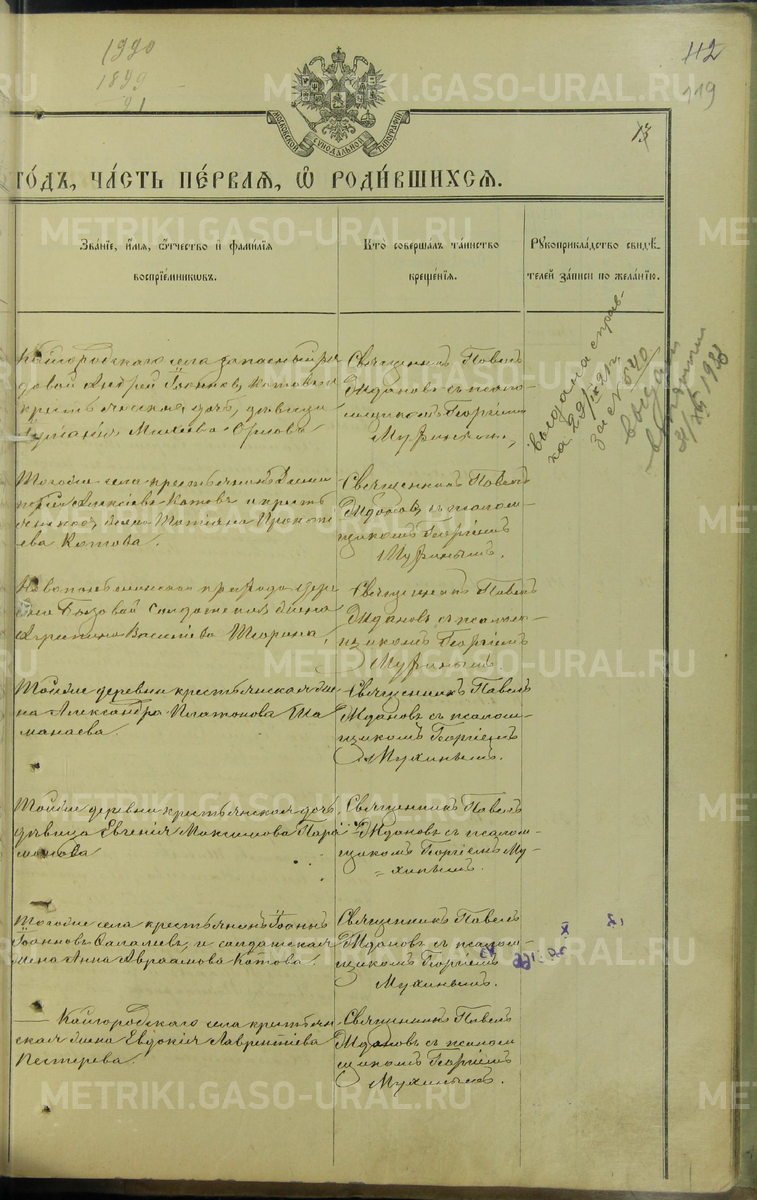 1990
1899
91
112
119
METRIKI.GASO-URAL.RU
МОСКОВСКОЙ СУНОДАЛЬНОЙ ТИПОГРАФІИ
13
ГОДЪ, ЧАСТЬ ПЕРВАЯ, Ѡ РОДИВШИХСЯ.
Званіе, имя, отчество и фамилія
воспріемниковъ.
Кто совершалъ таинство
крещенія.
Рукоприкладство свидѣ-
телей записи по желанію.
Кайгородскаго села запасный ря
довой Андрей Іоанновъ Котовъ и
крестьянская дочь, дѣвица
Михѣева Орлова
Священникъ Павелъ
Ждановъ съ псалом-
щикомъ Георгіемъ
Мухинымъ.
выдана справ-
ка 29/
за № 540
выдан
31/XII 1938
Тогоже села крестьянинъ
Алексѣевъ Котовъ и кресть
янская жена Татіана Прокопі
ева Котова.
Священникъ Павелъ
Ждановъ съ псалом-
щикомъ Георгіемъ
Мухинымъ.
прихода дере
вни солдатская жена
Агрипина Васильева
Священникъ Павелъ
Ждановъ съ псалом-
щикомъ Георгіемъ
Мухинымъ.
Тойже деревни крестьянская же
на Александра Платонова Ша
манаева.
Священникъ Павелъ
Ждановъ съ псалом-
щикомъ Георгіемъ
Мухинымъ.
Тойже деревни крестьянская дочь
дѣвица Евгенія Максимова Пара
монова
Священникъ Павелъ
Ждановъ съ псалом-
щикомъ Георгіемъ Му-
хинымъ.
Тогоже села крестьянинъ Іоаннъ
Іоанновъ и солдатская
жена Анна Авраамова Котова.
Священникъ Павелъ
Ждановъ съ псалом-
щикомъ Георгіемъ
Мухинымъ.
Кайгородскаго села крестьян
ская жена Евдокія Лаврентіева
Пестерева.
Священникъ Павелъ
Ждановъ съ псалом
щикомъ Георгіемъ
Мухинымъ.
METRIKI.GASO-URAL.RU